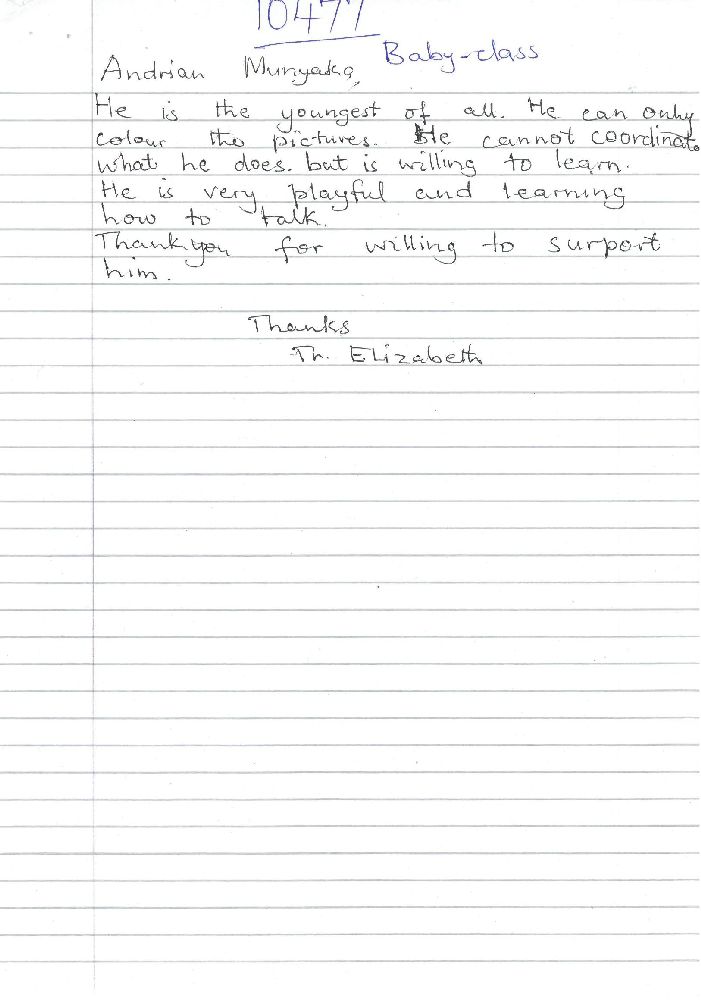 10477
Baby-class
Andrian Munyaka,
He is the youngest of all. He can only
colour the pictures. He cannot coordinate
what he does. but is willing to learn.
He is very playful and learning
how to talk.
Thank you for willing to surport
him.
Thanks
Tr. Elizabeth